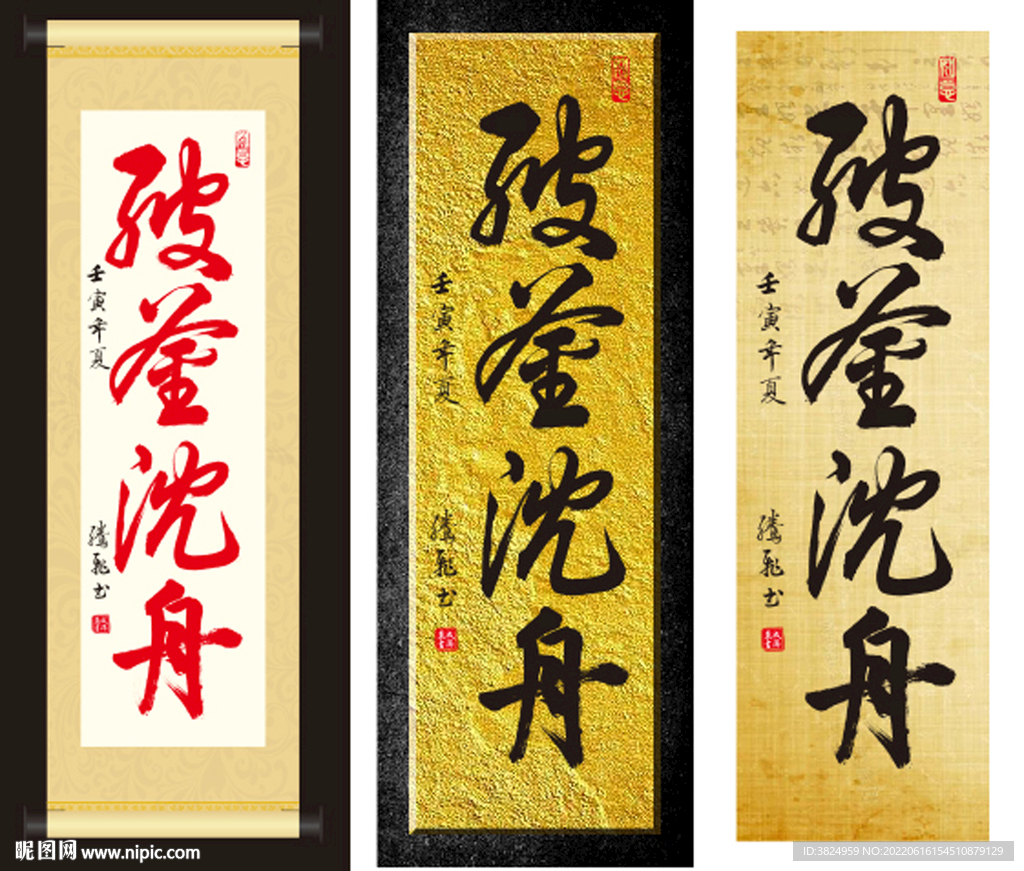 破釜沈舟
壬寅年夏
腾飞书
破釜沈舟
壬寅年夏
腾飞书
破釜沈舟
壬寅年夏
腾飞书
昵图网 www.nipic.com
ID:3824959 NO:20220616154510879129